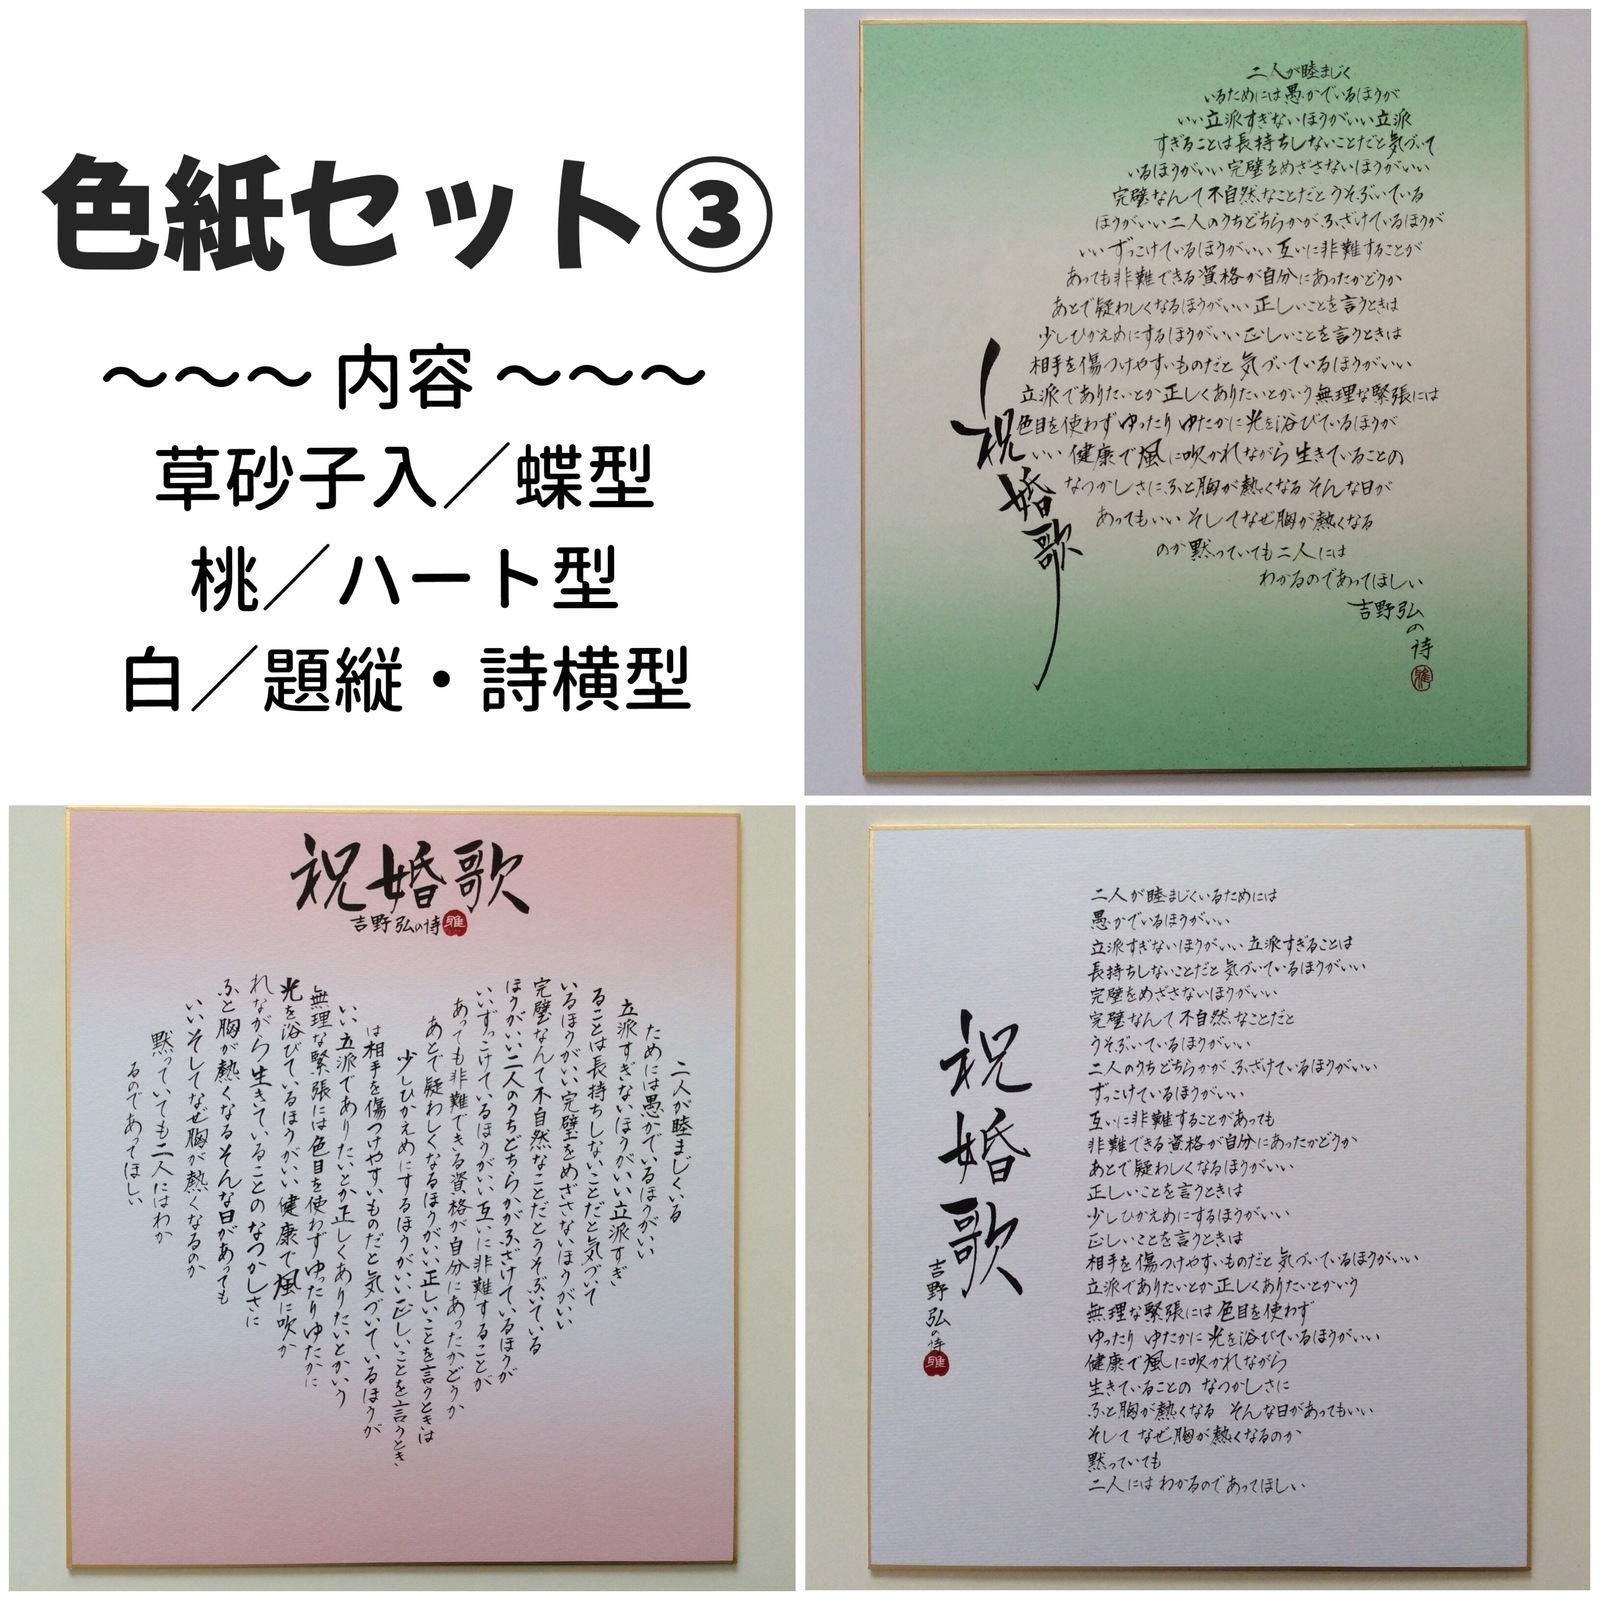 色紙セット③
～～～ 内容 ～～～
草砂子入／蝶型
桃／ハート型
白／題縦・詩横型
二人が睦まじく
いるためには愚かでいるほうが
いい立派すぎないほうがいい立派
すぎることは長持ちしないことだと気づいて
いるほうがいい完璧をめざさないほうがいい
完璧なんて不自然なことだとうそぶいている
ほうがいい二人のうちどちらかがふざけているほうが
いいずっこけているほうがいい互いに非難することが
あっても非難できる資格が自分にあったかどうか
あとで疑わしくなるほうがいい正しいことを言うときは
少しひかえめにするほうがいい正しいことを言うときは
相手を傷つけやすいものだと気づいているほうがいい
立派でありたいとか正しくありたいとかいう無理な緊張には
色目を使わずゆったりゆたかに光を浴びているほうが
いい健康で風に吹かれながら生きていることの
なつかしさにふと胸が熱くなるそんな日が
あってもいいそしてなぜ胸が熱くなる
のか黙っていても二人には
わかるのであってほしい
祝婚歌
吉野弘の詩
雅
祝婚歌
吉野弘の詩 雅
二人が睦まじくいる
ためには愚かでいるほうがいい
立派すぎないほうがいい立派すぎ
ることは長持ちしないことだと気づいて
いるほうがいい完璧をめざさないほうがいい
完璧なんて不自然なことだとうそぶいている
ほうがいい二人のうちどちらかがふざけているほうが
いいずっこけているほうがいい互いに非難することが
あっても非難できる資格が自分にあったかどうか
あとで疑わしくなるほうがいい正しいことを言うときは
少しひかえめにするほうがいい正しいことを言うとき
は相手を傷つけやすいものだと気づいているほうが
いい立派でありたいとか正しくありたいとかいう
無理な緊張には色目を使わずゆったりゆたかに
光を浴びているほうがいい健康で風に吹か
れながら生きていることのなつかしさに
ふと胸が熱くなるそんな日があっても
いいそしてなぜ胸が熱くなるのか
黙っていても二人にはわか
るのであってほしい
祝婚歌
吉野弘の詩
雅
二人が睦まじくいるためには
愚かでいるほうがいい
立派すぎないほうがいい 立派すぎることは
長持ちしないことだと気づいているほうがいい
完璧をめざさないほうがいい
完璧なんて不自然なことだと
うそぶいているほうがいい
二人のうちどちらかがふざけているほうがいい
ずっこけているほうがいい
互いに非難することがあっても
非難できる資格が自分にあったかどうか
あとで疑わしくなるほうがいい
正しいことを言うときは
少しひかえめにするほうがいい
正しいことを言うときは
相手を傷つけやすいものだと気づいているほうがいい
立派でありたいとか正しくありたいとかいう
無理な緊張には色目を使わず
ゆったり ゆたかに光を浴びているほうがいい
健康で風に吹かれながら
生きていることの なつかしさに
ふと胸が熱くなる そんな日があってもいい
そして なぜ胸が熱くなるのか
黙っていても
二人には わかるのであってほしい